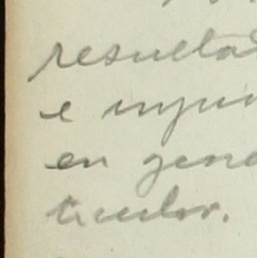 resulta
e inju
en gene
ticular.